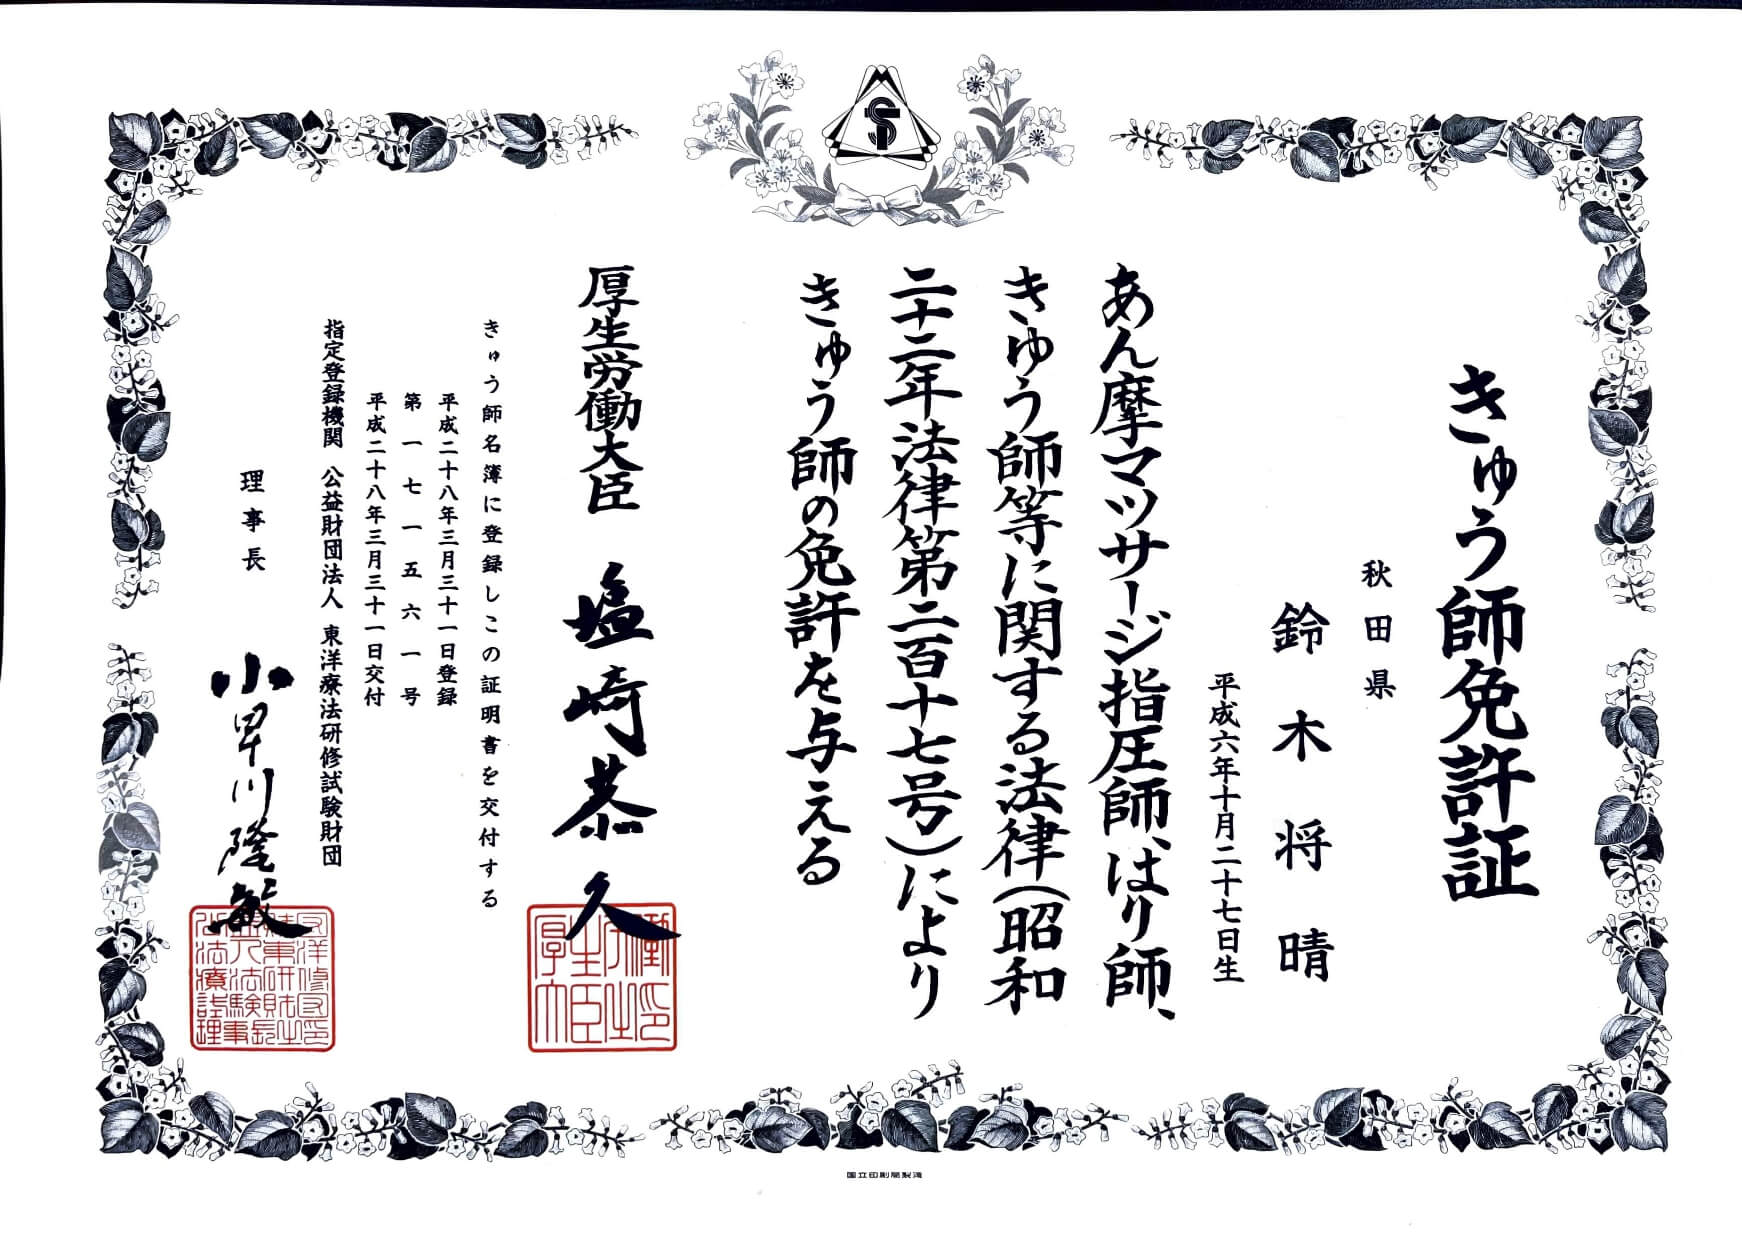 きゅう師免許証
秋田県
鈴木将晴
平成六年十月二十七日生
あん摩マツサージ指圧師、はり師、
きゆう師等に関する法律(昭和
二十二年法律第二百十七号)により
きゅう師の免許を与える
厚生労働大臣 塩崎恭久
きゅう師名簿に登録しこの証明書を交付する
平成二十八年三月三十一日登録
第一七一五六一号
平成二十八年三月三十一日交付
指定登録機関 公益財団法人 東洋療法研修試験財団
理事長 小早川隆敏
国立印刷局製造